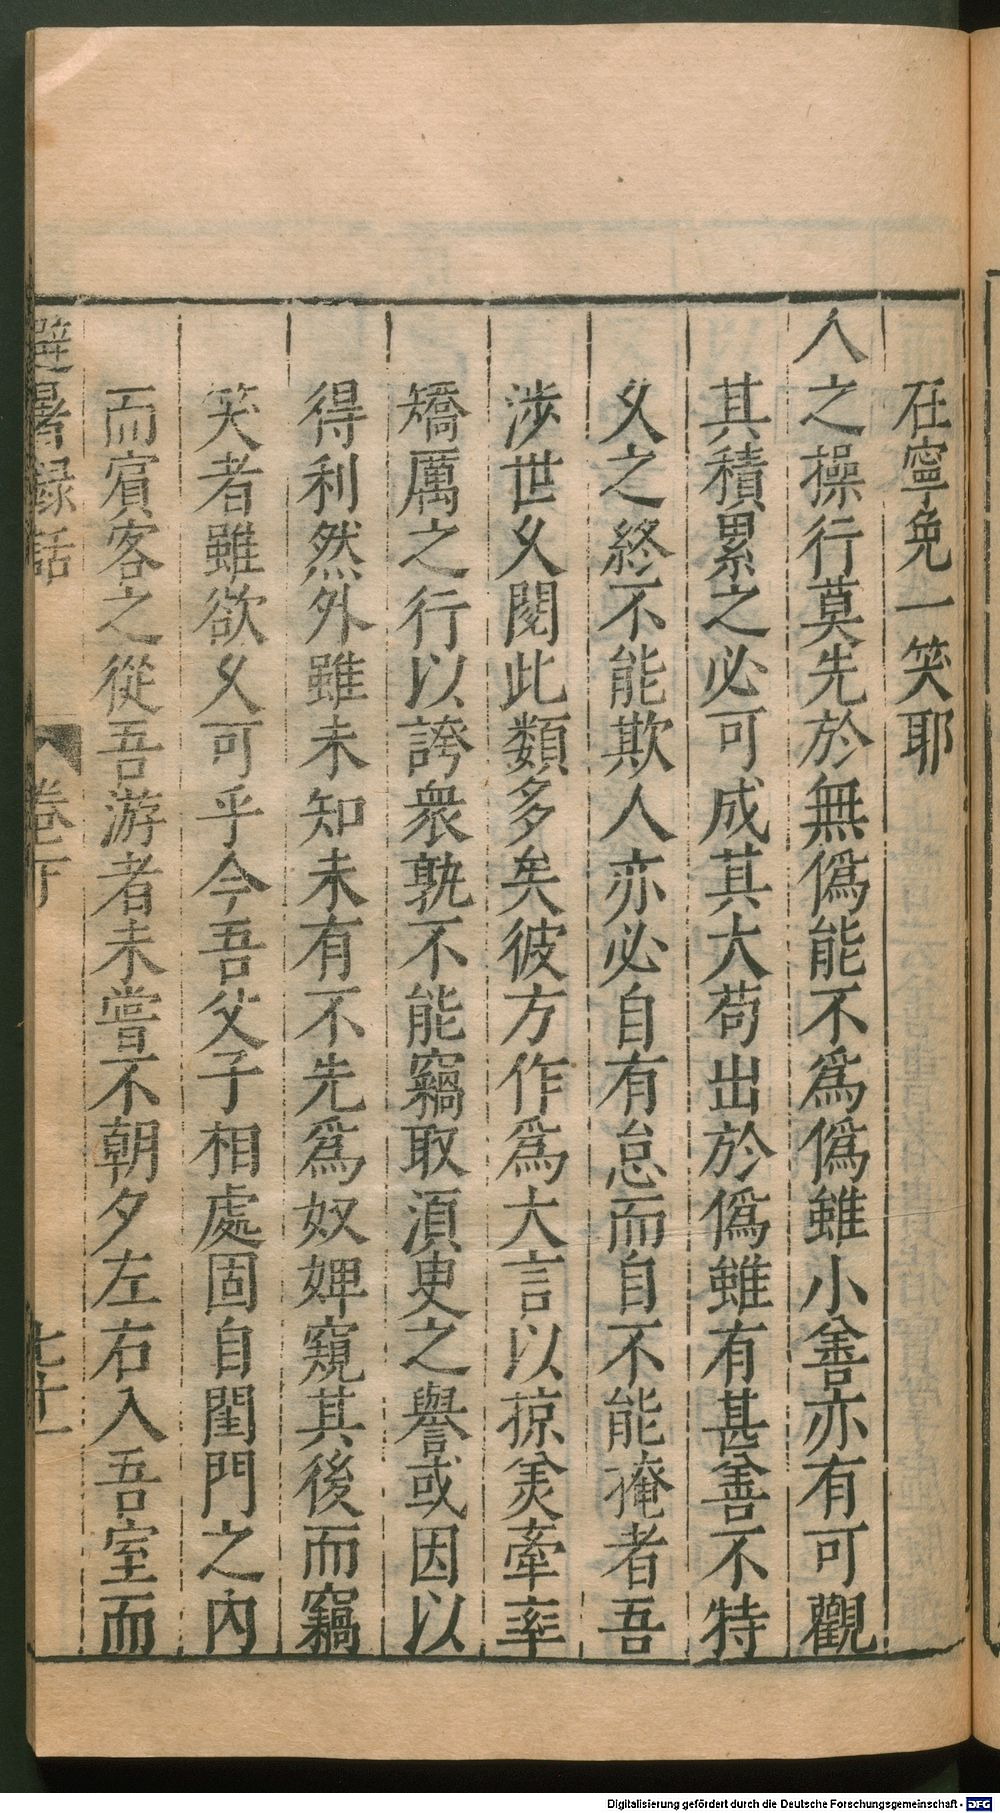 在寧免一笑耶
人之操行莫先於無僞能不爲僞雖小善亦有可觀
其積累之必可成其大苟出於僞雖有甚善不特
乆之終不能欺人亦必自有怠而自不能掩者吾
涉世乆閱此類多矣彼方作爲大言以掠美牽率
矯厲之行以誇衆孰不能竊取湏臾之譽或因以
得利然外雖未知未有不先爲奴婢窺其後而竊
笑者雖欲乆可乎今吾父子相處固自閨門之內
而賔客之從吾游者未嘗不朝夕左右入吾室而
避暑録話
卷下
七十一
Digitalisierung gefördert durch die Deutsche Forschungsgemeinschaft - DFG